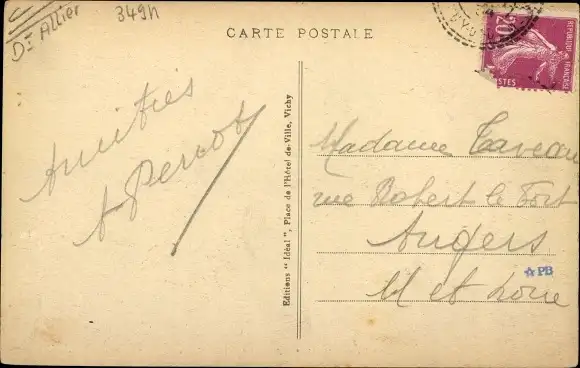 Dt Allier
349h
CARTE POSTALE
20
RÉPUBLIQUE FRANÇAISE
POSTES
Amitiés
A Perrot
Editions " Idéal ", Place de l'Hôtel-de-Ville, Vichy
Madame Taveau
rue Robert le Fort
Angers
M et Loire
PB